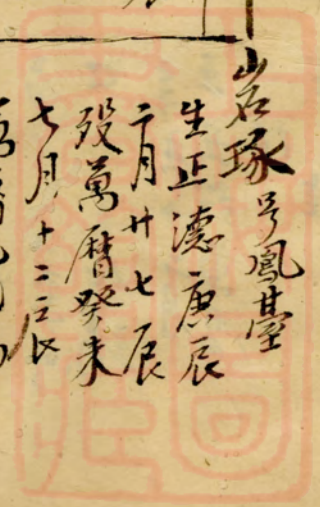 岩琢号鳳臺
生正德庚辰
二月廿七辰
殁萬曆癸未
七月十二辰